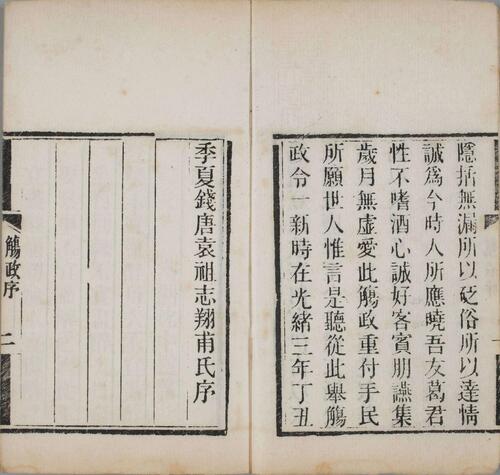 隱括無漏所以砭俗所以達情
誠爲今時人所應曉吾友葛君
性不嗜酒心誠好客賓朋讌集
歲月無虛愛此觴政重付手民
所願世人惟言是聽從此舉觴
政令一新時在光緒三年丁丑
季夏錢唐袁祖志翔甫氏序
觴政序
二